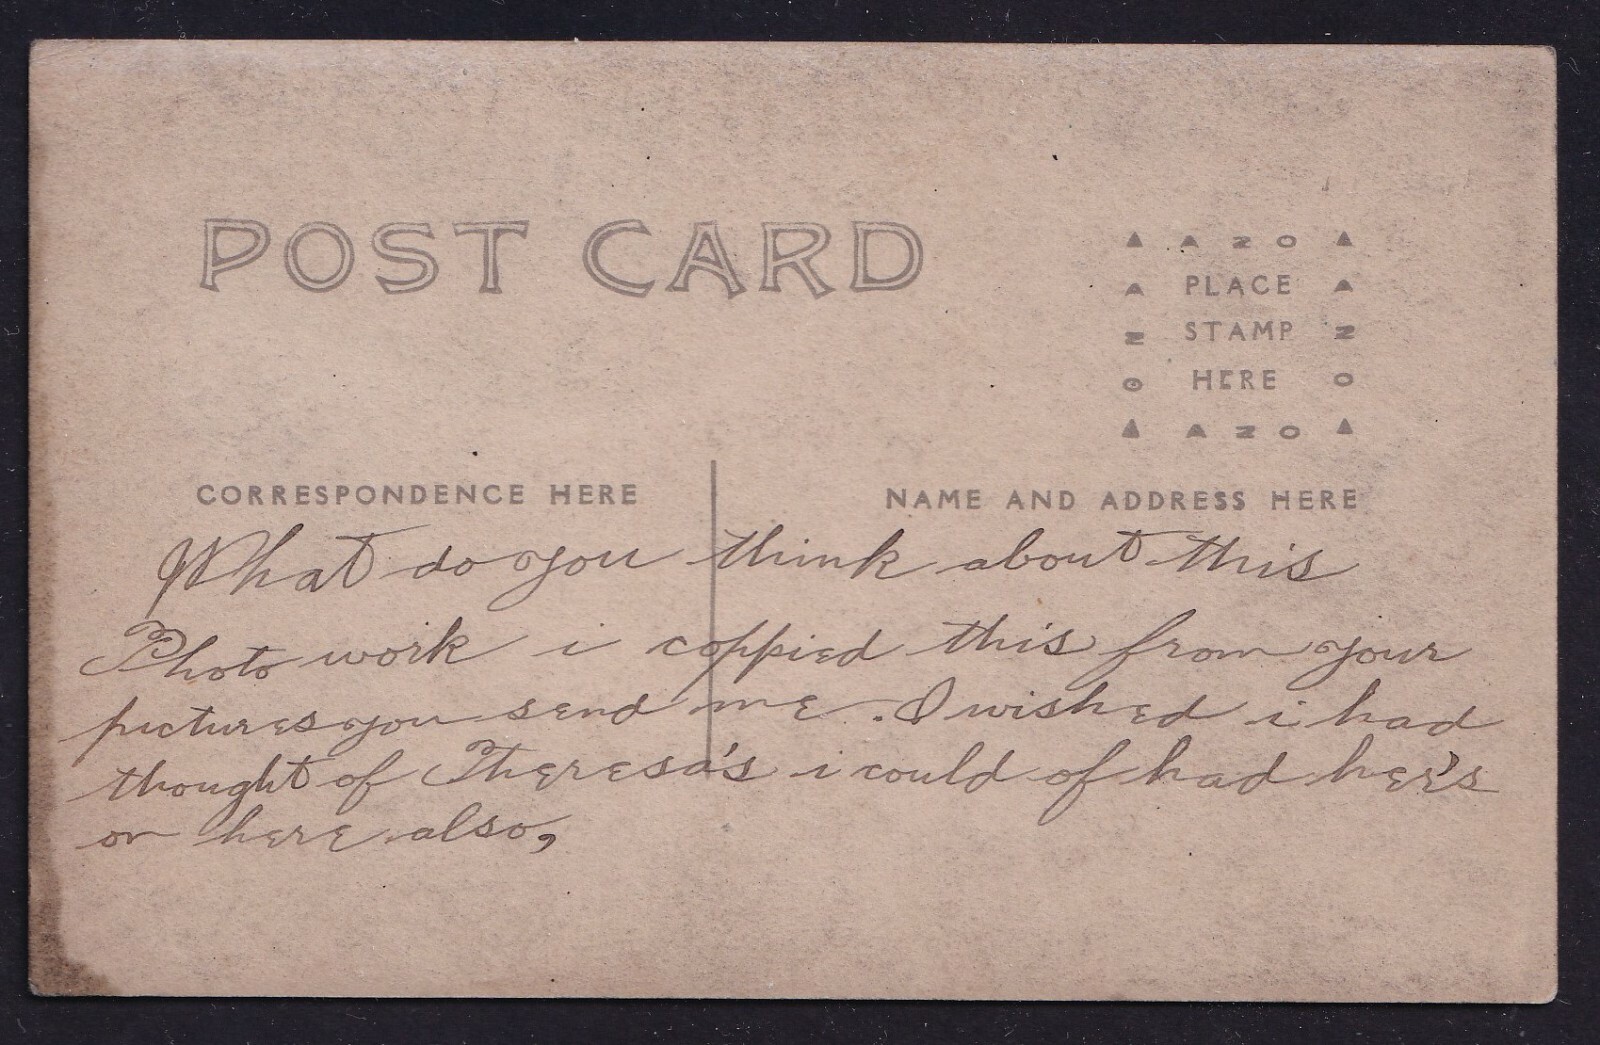 POST CARD
▲ A Z O ▲
A PLACE A
Z STAMP Z
O HERE O
▲ A Z O ▲
CORRESPONDENCE HERE
NAME AND ADDRESS HERE
What do you think about this
Photo work i coppied this from your
pictures you send me. I wished i had
thought of Theresa's i could of had her's
on here also,